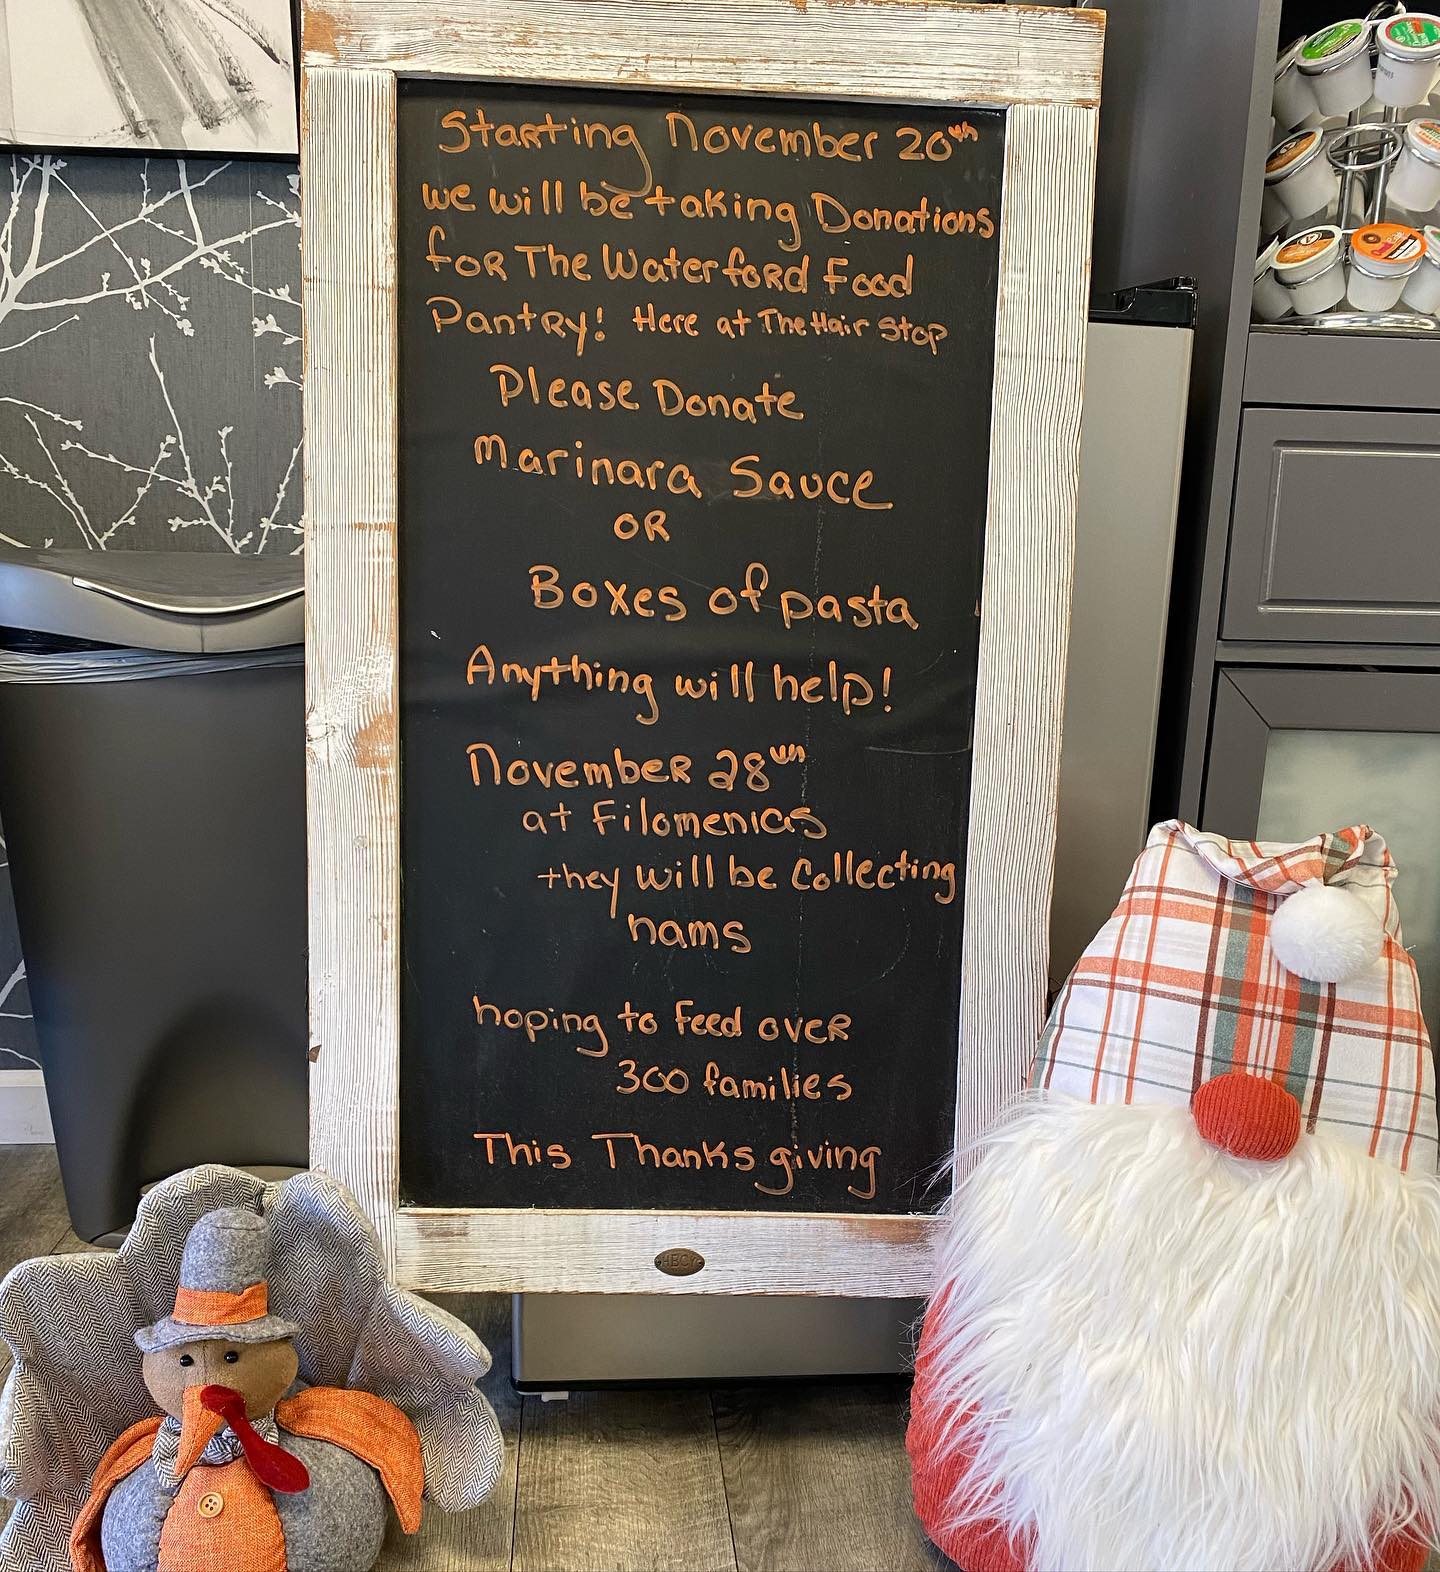 Starting November 20th
we will be taking Donations
for The Waterford Food
Pantry! Here at The Hair Stop
Please Donate
Marinara Sauce
OR
Boxes of pasta
Anything will help!
November 28th
at Filomenias
they will be Collecting
hams
hoping to feed over
300 families
This Thanksgiving